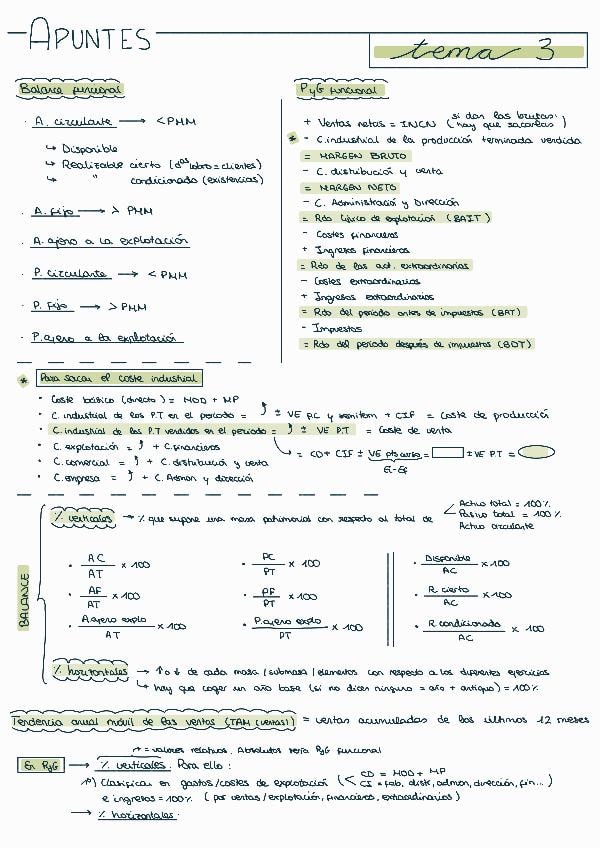 APUNTES
tema 3
Balance funcional
· A. circulante → < PMM
↳ Disponible
↳ Realizable cierto (dos cobro = clientes)
↳ " condicionado (existencias)
· A. fijo → > PMM
· A. ajeno a la explotación
· P. circulante → < PMM
· P. Fijo → > PMM
· P. ajeno a la explotación
PyG funcional
+ Ventas netas = INCN (si dan las brutas: hay que sacarlas)
* - C. industrial de la producción terminada vendida
= MARGEN BRUTO
- C. distribución y venta
= MARGEN NETO
- C. Administración y Dirección
= Rdo típico de explotación (BAIT)
- Costes financieros
+ Ingresos financieros
= Rdo de las act. extraordinarias
- Costes extraordinarios
+ Ingresos extraordinarios
= Rdo del periodo antes de impuestos (BAT)
- Impuestos
= Rdo del periodo después de impuestos (BDT)
* Para sacar el coste industrial
· Coste básico (directo) = MOD + MP
· C. industrial de los P.T en el periodo = ⤴ ± VE P.C y semiterm + CIF = Coste de producción
· C. industrial de los P.T vendidos en el periodo = ⤴ ± VE P.T = Coste de venta
↳ = CD + CIF ± VE pts curso = ± VE P.T =
Ei-Ef
· C. explotación = ⤴ + C. financieros
· C. comercial = ⤴ + C. distribución y venta
· C. empresa = ⤴ + C. Admon y dirección
BALANCE
% verticales → % que supone una masa patrimonial con respecto al total de
Activo total = 100%
Pasivo total = 100%
Activo circulante
· AC / AT x 100
· PC / PT x 100
· Disponible / AC x 100
· AF / AT x 100
· PF / PT x 100
· R cierto / AC x 100
· A ajeno explo / AT x 100
· P. ajeno explo / PT x 100
· R condicionado / AC x 100
% horizontales → ↑ o ↓ de cada masa / submasa / elementos con respecto a los diferentes ejercicios
↳ hay que coger un año base (si no dicen ninguno = año + antiguo) = 100%
Tendencia anual móvil de las ventas (TAM ventas) = ventas acumuladas de los últimos 12 meses
= valores relativos. Absolutos sería PyG funcional
En PyG → % verticales. Para ello:
1º) Clasificar en gastos/costes de explotación (< CD = MOD + MP
CI = fab, distr, admon, dirección, fin...)
e ingresos = 100% (por ventas / explotación, financieros, extraordinarios)
→ % horizontales.